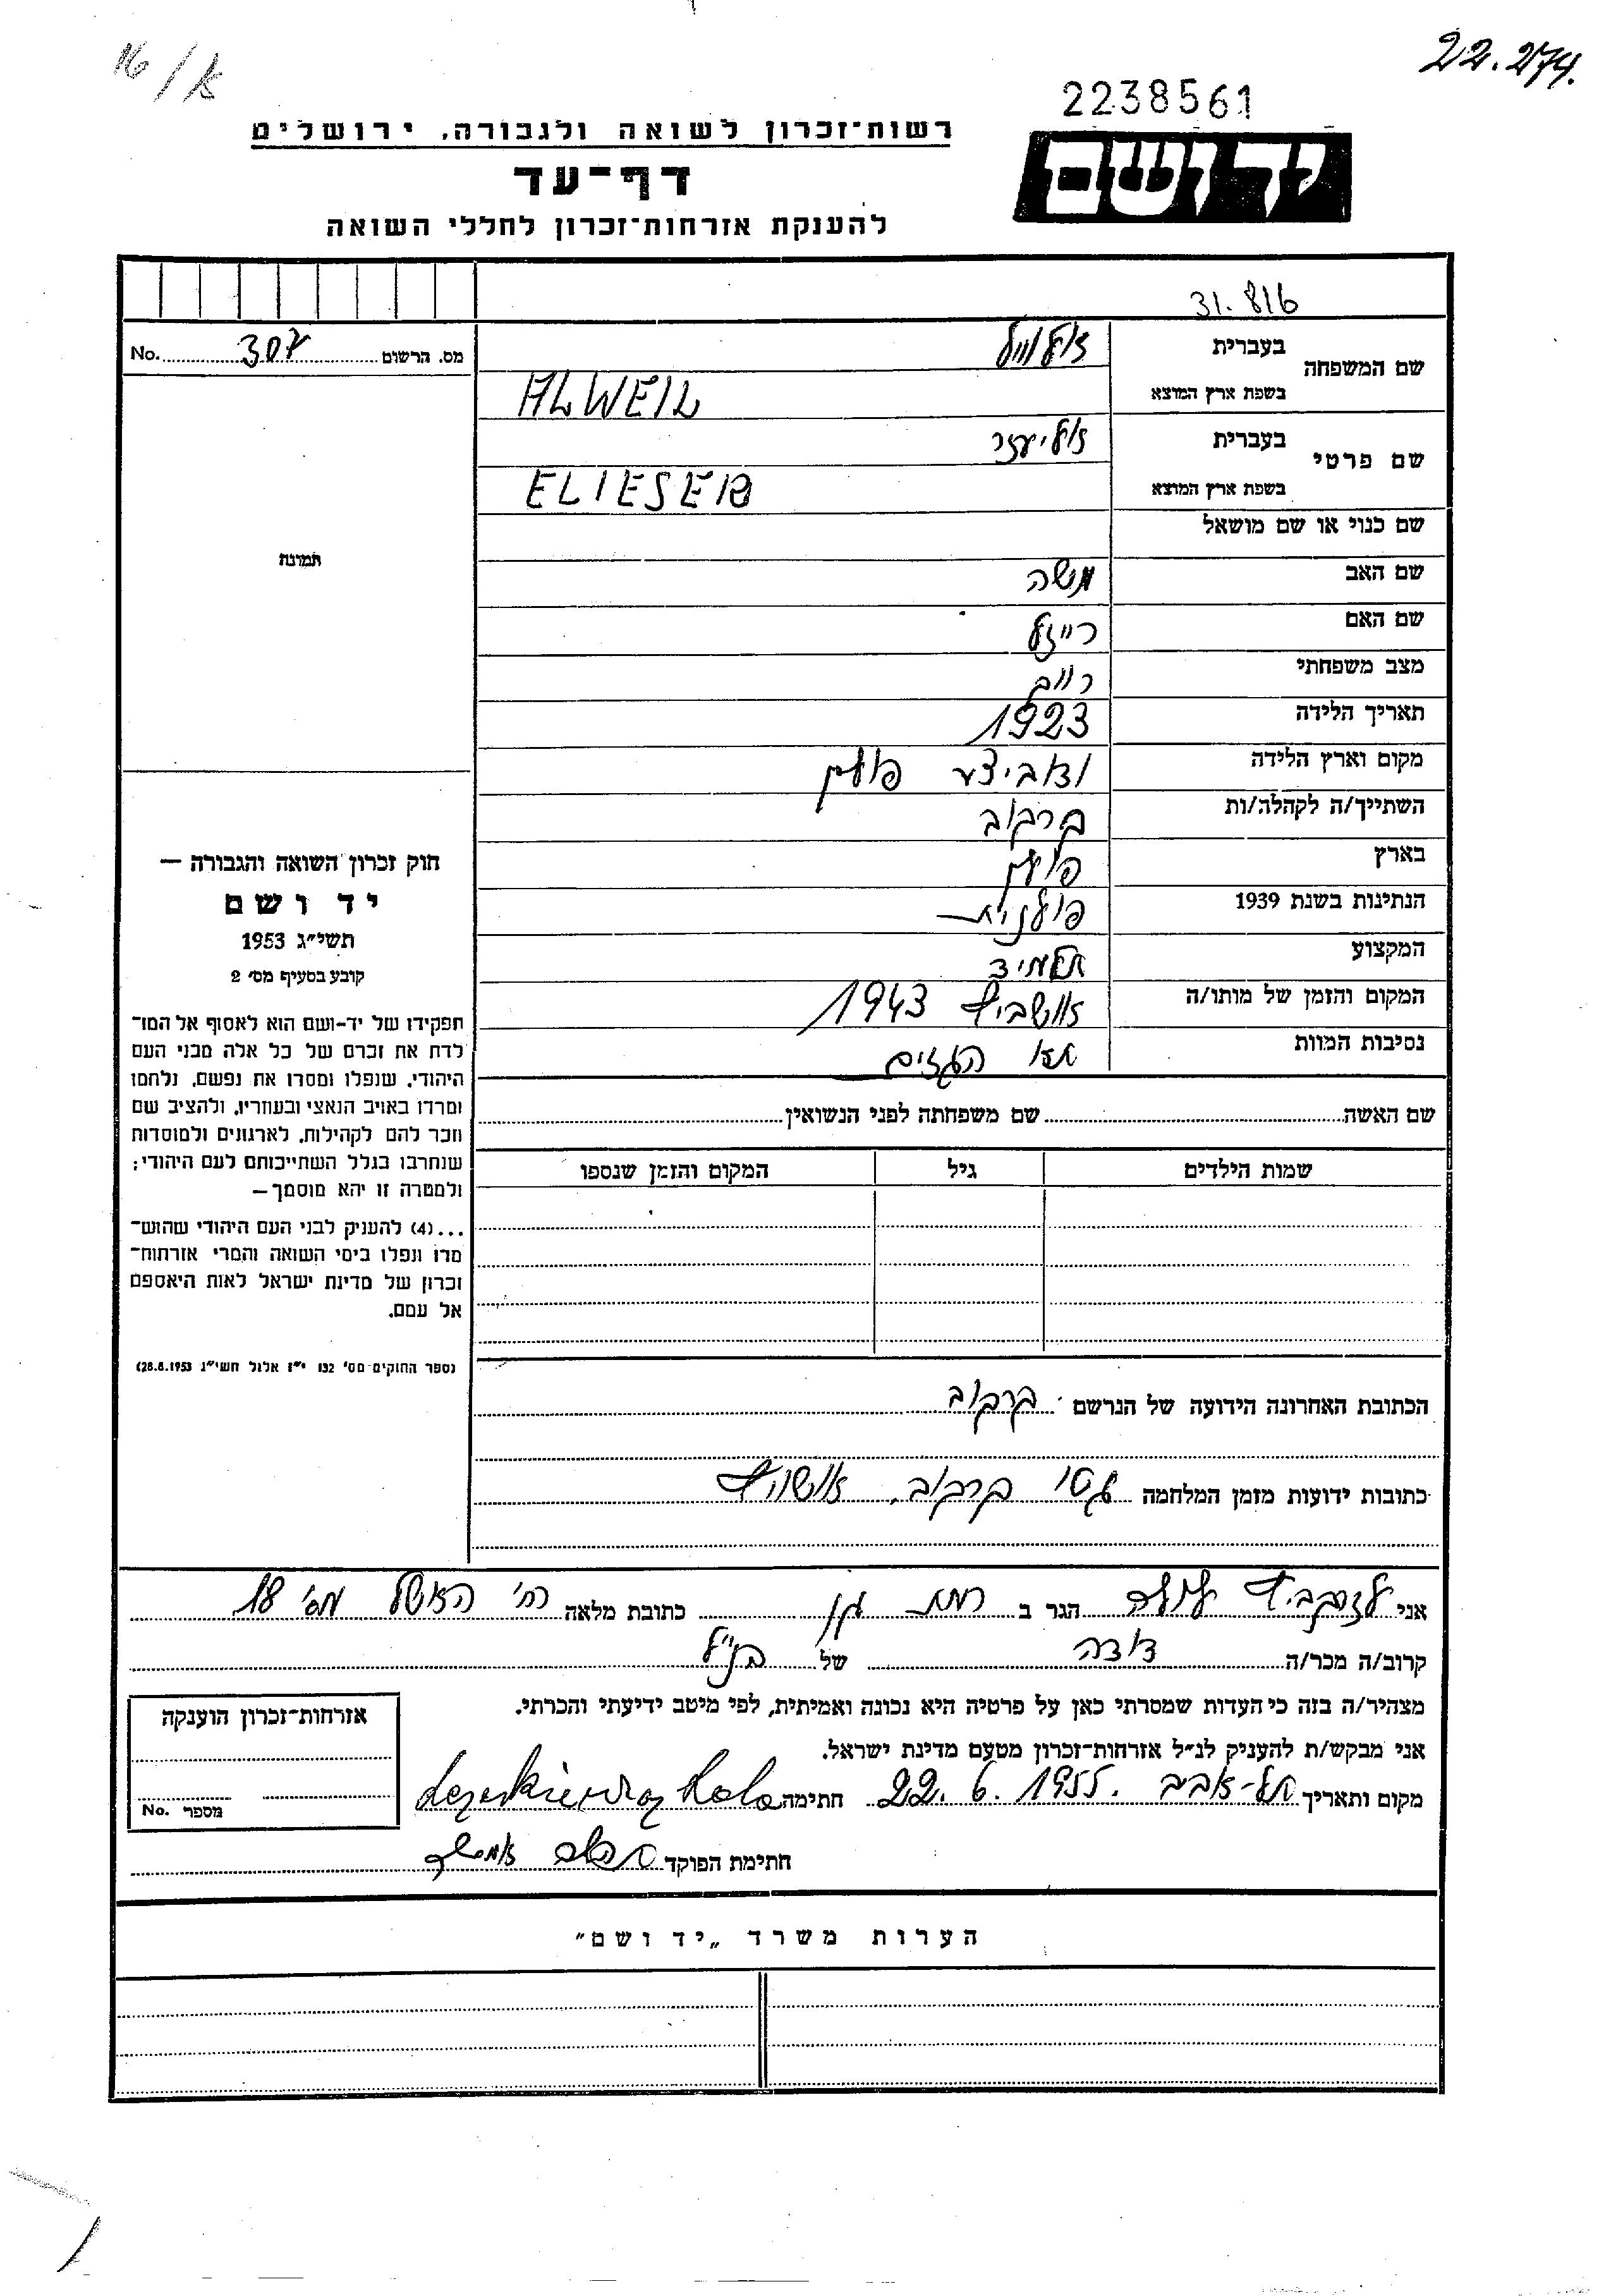 א/16
22.274.
2238561
רשות־זכרון לשואה ולגבורה, ירושלים
יד ושם
דף־עד
להענקת אזרחות־זכרון לחללי השואה
31.816
מס. הרשום 307 No.
שם המשפחה
בעברית אלווייל
בשפת ארץ המוצא ALWEIL
שם פרטי
בעברית אליעזר
בשפת ארץ המוצא ELIESER
שם כנוי או שם מושאל
תמונה
שם האב משה
שם האם רייזל
מצב משפחתי רווק
תאריך הלידה 1923
מקום וארץ הלידה ואביצע פולין
השתייך/ה לקהלה/ות קרקוב
בארץ פולין
הנתינות בשנת 1939 פולנית
המקצוע תלמיד
המקום והזמן של מותו/ה אושביץ 1943
נסיבות המוות תאי הגזים
שם האשה שם משפחתה לפני הנשואין
שמות הילדים גיל המקום והזמן שנספו
חוק זכרון השואה והגבורה —
יד ושם
תשי״ג 1953
קובע בסעיף מס׳ 2
תפקידו של יד-ושם הוא לאסוף אל המו־
לדת את זכרם של כל אלה מבני העם
היהודי, שנפלו ומסרו את נפשם, נלחמו
ומרדו באויב הנאצי ובעוזריו, ולהציב שם
וזכר להם לקהילות, לארגונים ולמוסדות
שנחרבו בגלל השתייכותם לעם היהודי;
ולמטרה זו יהא מוסמך—
...(4) להעניק לבני העם היהודי שהוש־
מדו ונפלו בימי השואה והמרי אזרחות־
זכרון של מדינת ישראל לאות היאספם
אל עמם.
(ספר החוקים מס׳ 132 י״ז אלול תשי״ג 28.8.1953)
הכתובת האחרונה הידועה של הנרשם קרקוב
כתובות ידועות מזמן המלחמה גטו קרקוב, אושויץ
אני לזרקביץ לולה הגר ב רמת גן כתובת מלאה רח׳ האשל מס׳ 18
קרוב/ה מכר/ה דודה של הנ״ל
מצהיר/ה בזה כי העדות שמסרתי כאן על פרטיה היא נכונה ואמיתית, לפי מיטב ידיעתי והכרתי.
אני מבקש/ת להעניק לנ״ל אזרחות־זכרון מטעם מדינת ישראל.
מקום ותאריך תל-אביב. 22.6.1955 חתימה
חתימת הפוקד
אזרחות־זכרון הוענקה
מספר No.
הערות משרד „יד ושם״